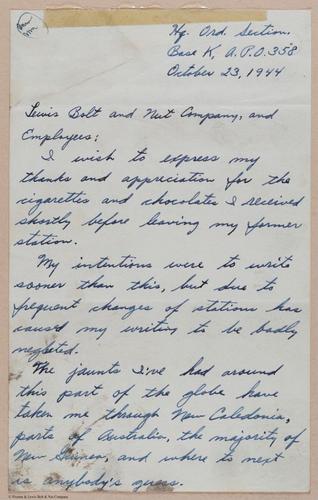 Hq. Ord. Section.
Base K, A.P.O. 358
October 23, 1944
Lewis Bolt and Nut Company, and
Employees:
I wish to express my
thanks and appreciation for the
cigarettes and chocolates I received
shortly before leaving my former
station.
My intentions were to write
sooner than this, but due to
frequent changes of stations has
caused my writing to be badly
neglected.
The jaunts I've had around
this part of the globe have
taken me through New Caledonia,
parts of Australia, the majority of
New Guinea, and where to next
is anybody's guess.
Lewis Bolt & Nut Company